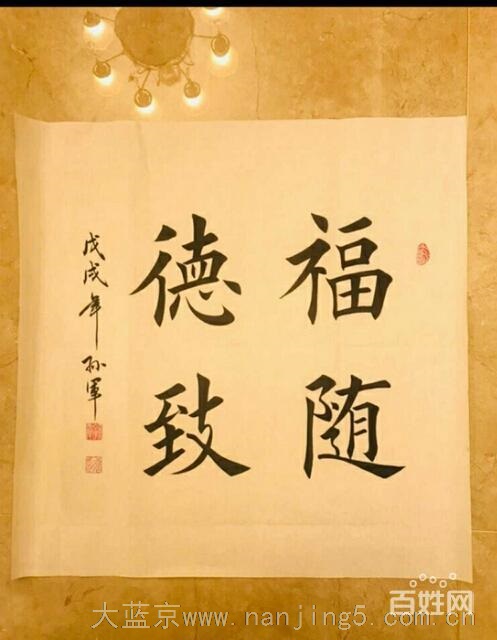 福随
德致
戊戌年 孙军
大蓝京www.nanjing5.com.cn
百姓网